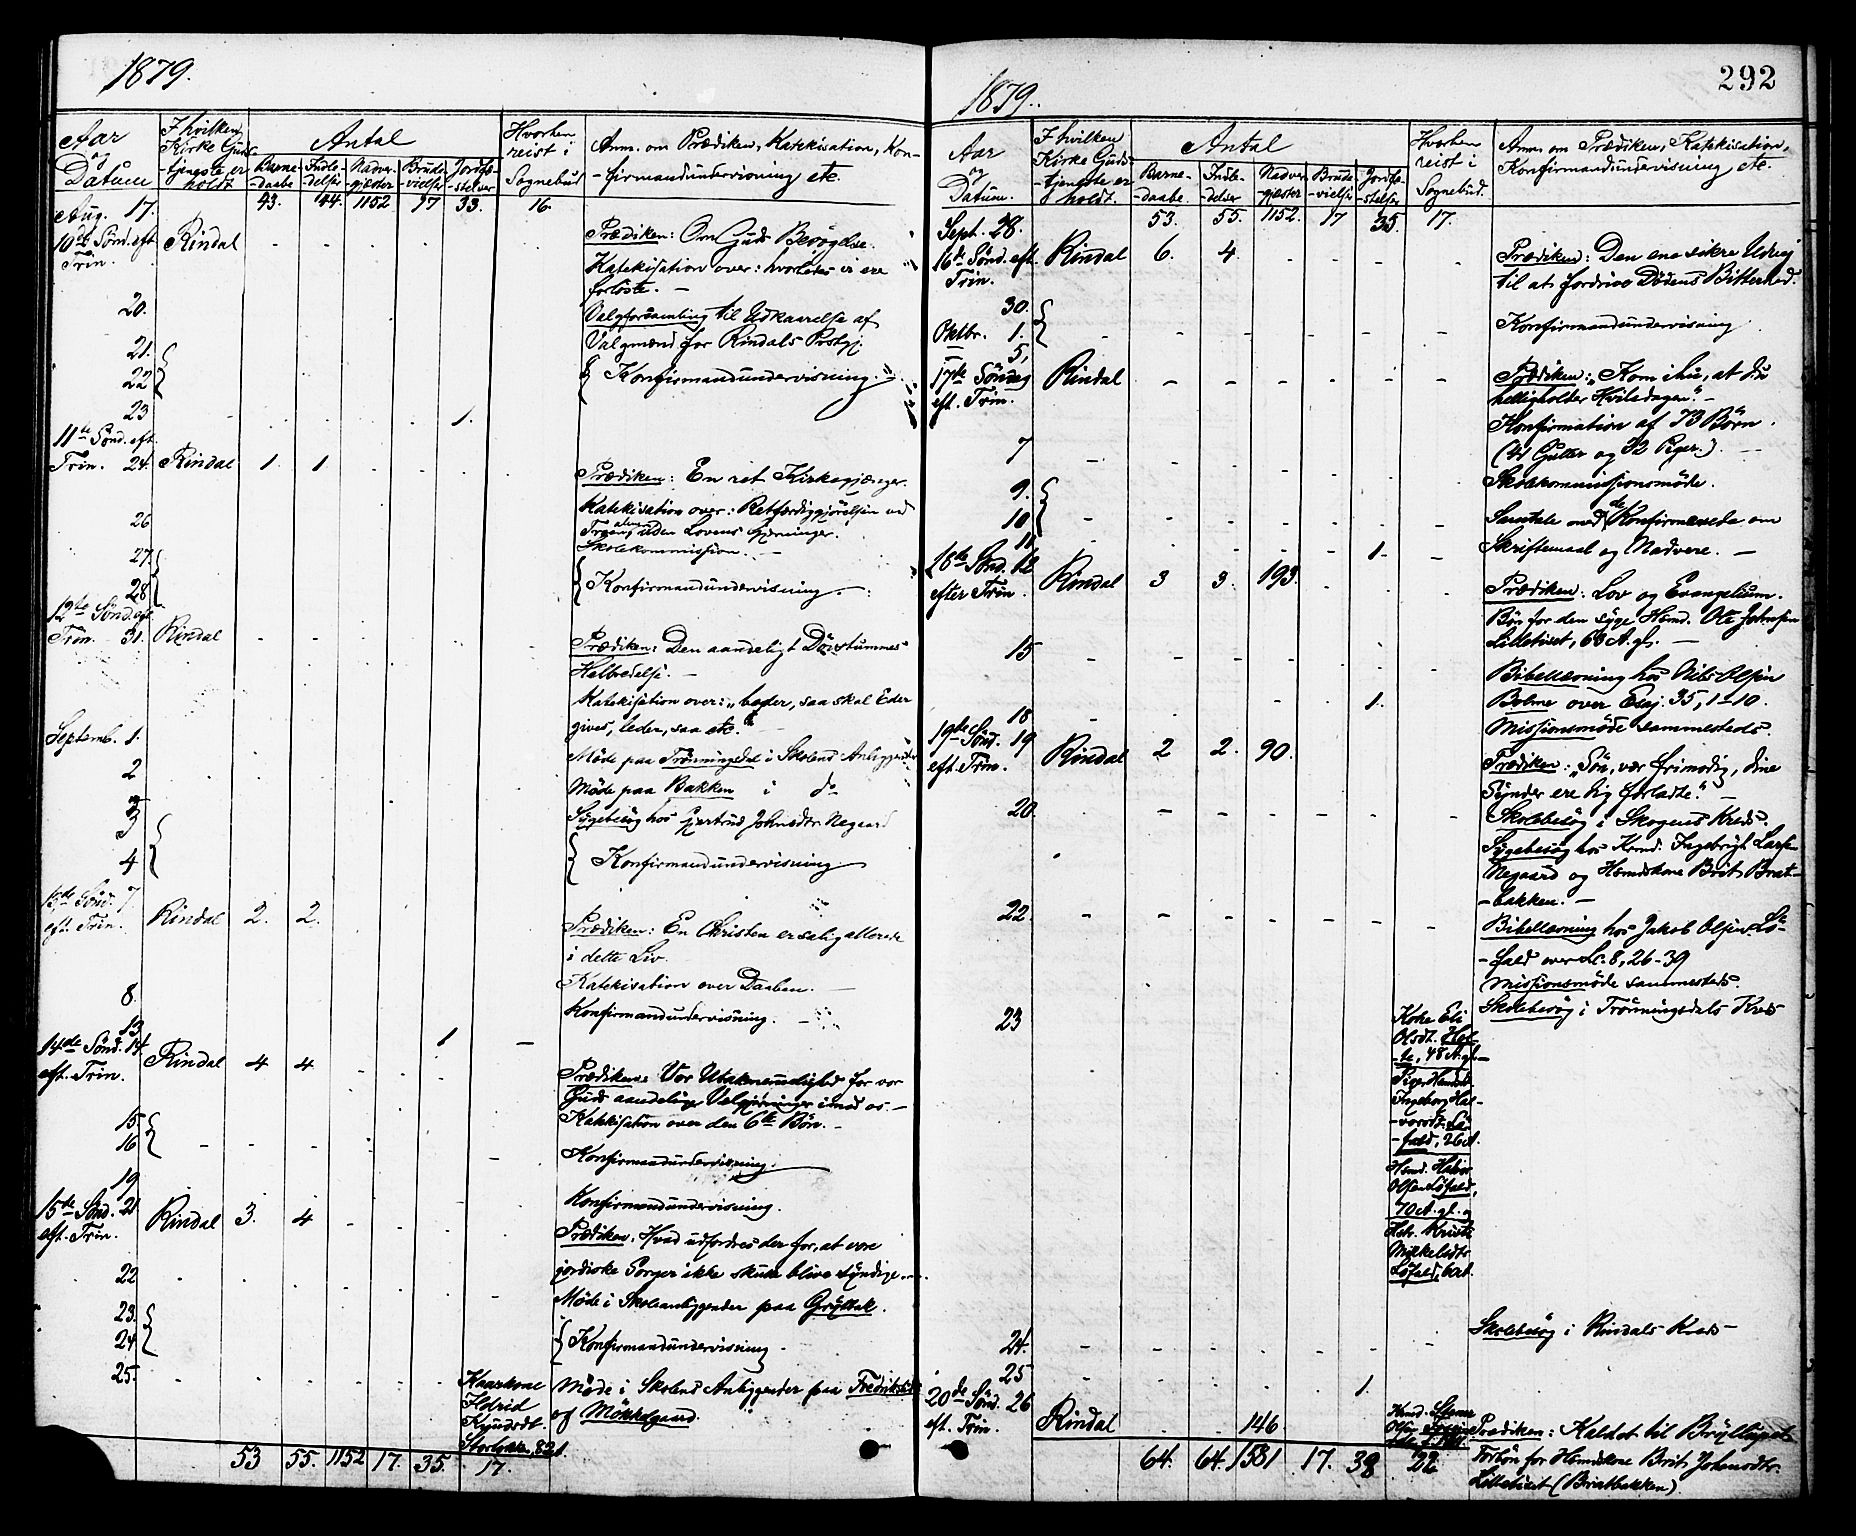 1879.
Aar og Datum
I hvilken Kirke Guds-tjeneste er holdt.
Antal
Barne-daabe
Indle-delser
Nadver-gjæster
Brude-vielser
Jordfæ-stelser
Hvorhen reist i Sognebud
Anm. om Prædiken, Katekisation, Kon-
-firmandundervisning etc.
Aug. 17. 43. 1152 17 33. 16.
10de Sønd. eft. Trin. Rindal
Prædiken: Om Guds Besøgelse.
Katekisation over: hvorledes vi ere
forløste. —
20. Valgforsamling til Udkaarelse af
Valgmænd for Rindals Prstgj.
21.
22 } { Konfirmandundervisning.
23 1.
11te Sønd. eft.
Trin. 24. Rindal 1 1
Prædiken: En ret Kirkegjænger.
Katekisation over: Retfærdiggjørelsen ved
Troen alene, uden Lovens Gjerninger.
26 Skolekommission. —
27.
28 } { Konfirmandundervisning
12te Sønd. eft.
Trin. 31. Rindal
Prædiken: Den aandeligt Døvstummes
Helbredelse. —
Katekisation over: „beder, saa skal Eder
gives, leder, saa etc.
Septemb. 1. Møde paa Trønningsdal i Skolens Anliggender
2 Møde paa Bakken i do
Sygebesøg hos Gjertrud Johnsdtr Negaard
3
4 } { Konfirmandundervisning
13de Sønd. 7
eft. Trin. Rindal 2. 2.
Prædiken: En Christen er salig allerede
i dette Liv.
Katekisation over Daaben. —
8. Konfirmandundervisning. —
13 1 —
14de Sønd. 14
eft. Trin. Rindal 4 4
Prædiken: Vor Utaknemmelighed for vor
Guds aandelige Velgjerninger imod os. —
Katekisation over den 6te Bøn. —
15.
16 } Konfirmandundervisning.
19 Konfirmandundervisning.
15de Sønd. 21
eft. Trin. Rindal 3. 4
Prædiken: Hvad udfordres der for, at vore
jordiske Sorger ikke skulle blive syndige
22 Møde i Skoleanliggender paa Grÿttak.
23.
24 } { Konfirmandundervisning
25. Møde i Skolens Anliggender paa
og Møkkelgaard.
Kaarkone
Ildrid
Knudsdt
53 55. 1152 17. 35. 17.
292
1879.
Aar og Datum.
I hvilken Kirke Guds-tjeneste er holdt.
Antal
Barne-daabe
Indle-delser
Nadver-gjæster
Brude-vielser
Jordfæ-stelser
Hvorhen reist i Sognebud.
Anm. om Prædiken, Katekisation,
Konfirmandundervisning etc
Sept. 28. 53. 55. 1152. 17 35. 17.
16de Sønd. eft. Trin. Rindal 6. 4.
Prædiken: Den ene sikre Udvej
til at fordrive Dødens Bitterhed.
30.
Oktbr. 1. } Konfirmandundervisning
5,
17de Søndag eft. Trin. Rindal
Prædiken: „Kom ihu, at du
helligholder Hviledagen“. —
Konfirmation af 73 Børn.
(41 Gutter og 32 Piger.) —
7 Skolekommissionsmøde.
9.
10 } Samtale med de Konfirmerede om
Skriftemaal og Nadvere. —
11 1.
18de Sønd. 12
efter Trin. Rindal 3 3. 193.
Prædiken: Lov og Evangelium.
Bøn for den syge Hsmd. Ole Johnsen
Littetivet, 63 A. gl. —
15 Bibellæsning hos Nils Olsen
Bolme over Esaj. 35, 1-10.
Missionsmøde sammesteds.
18 1.
19de Sønd. 19
eft. Trin. Rindal 2 2. 90.
Prædiken: „Søn, vær frimodig, dine
Synder ere dig forladte.“ —
20. Skolebesøg i Skogens Kreds.
Sygebesøg hos Krmd. Ingebrigt Larsen
Negaard og Hsmdskone Brit Brat-
-bakken. —
22. Bibellæsning hos Jakob Olsen Lø-
-fald over Ac. 8, 26-39
Missionsmøde sammesteds.
23 Skolebesøg i Trønningsdals Kreds
Kone Eli
Olsdt. Hol-
-te, 48 A. gl. —
Ingeborg Hal-
-vorsdt. Lø-
-fald, 26 A.
Hsmd. Halvor
Olsen Løfald,
70 A. gl. og
Hstr. Kristi
Mikkelsdtr.
Løfald,
24. Skolebesøg i Rindals Kreds —
25 1.
20de Sønd. 26
eft. Trin. Rindal 146.
Prædiken: Kaldet til Brÿllupet
Forbøn for Hsmdskone Brit Johnsdtr.
Littetivet (Bratbakken)
64. 64. 1581 17. 38 22